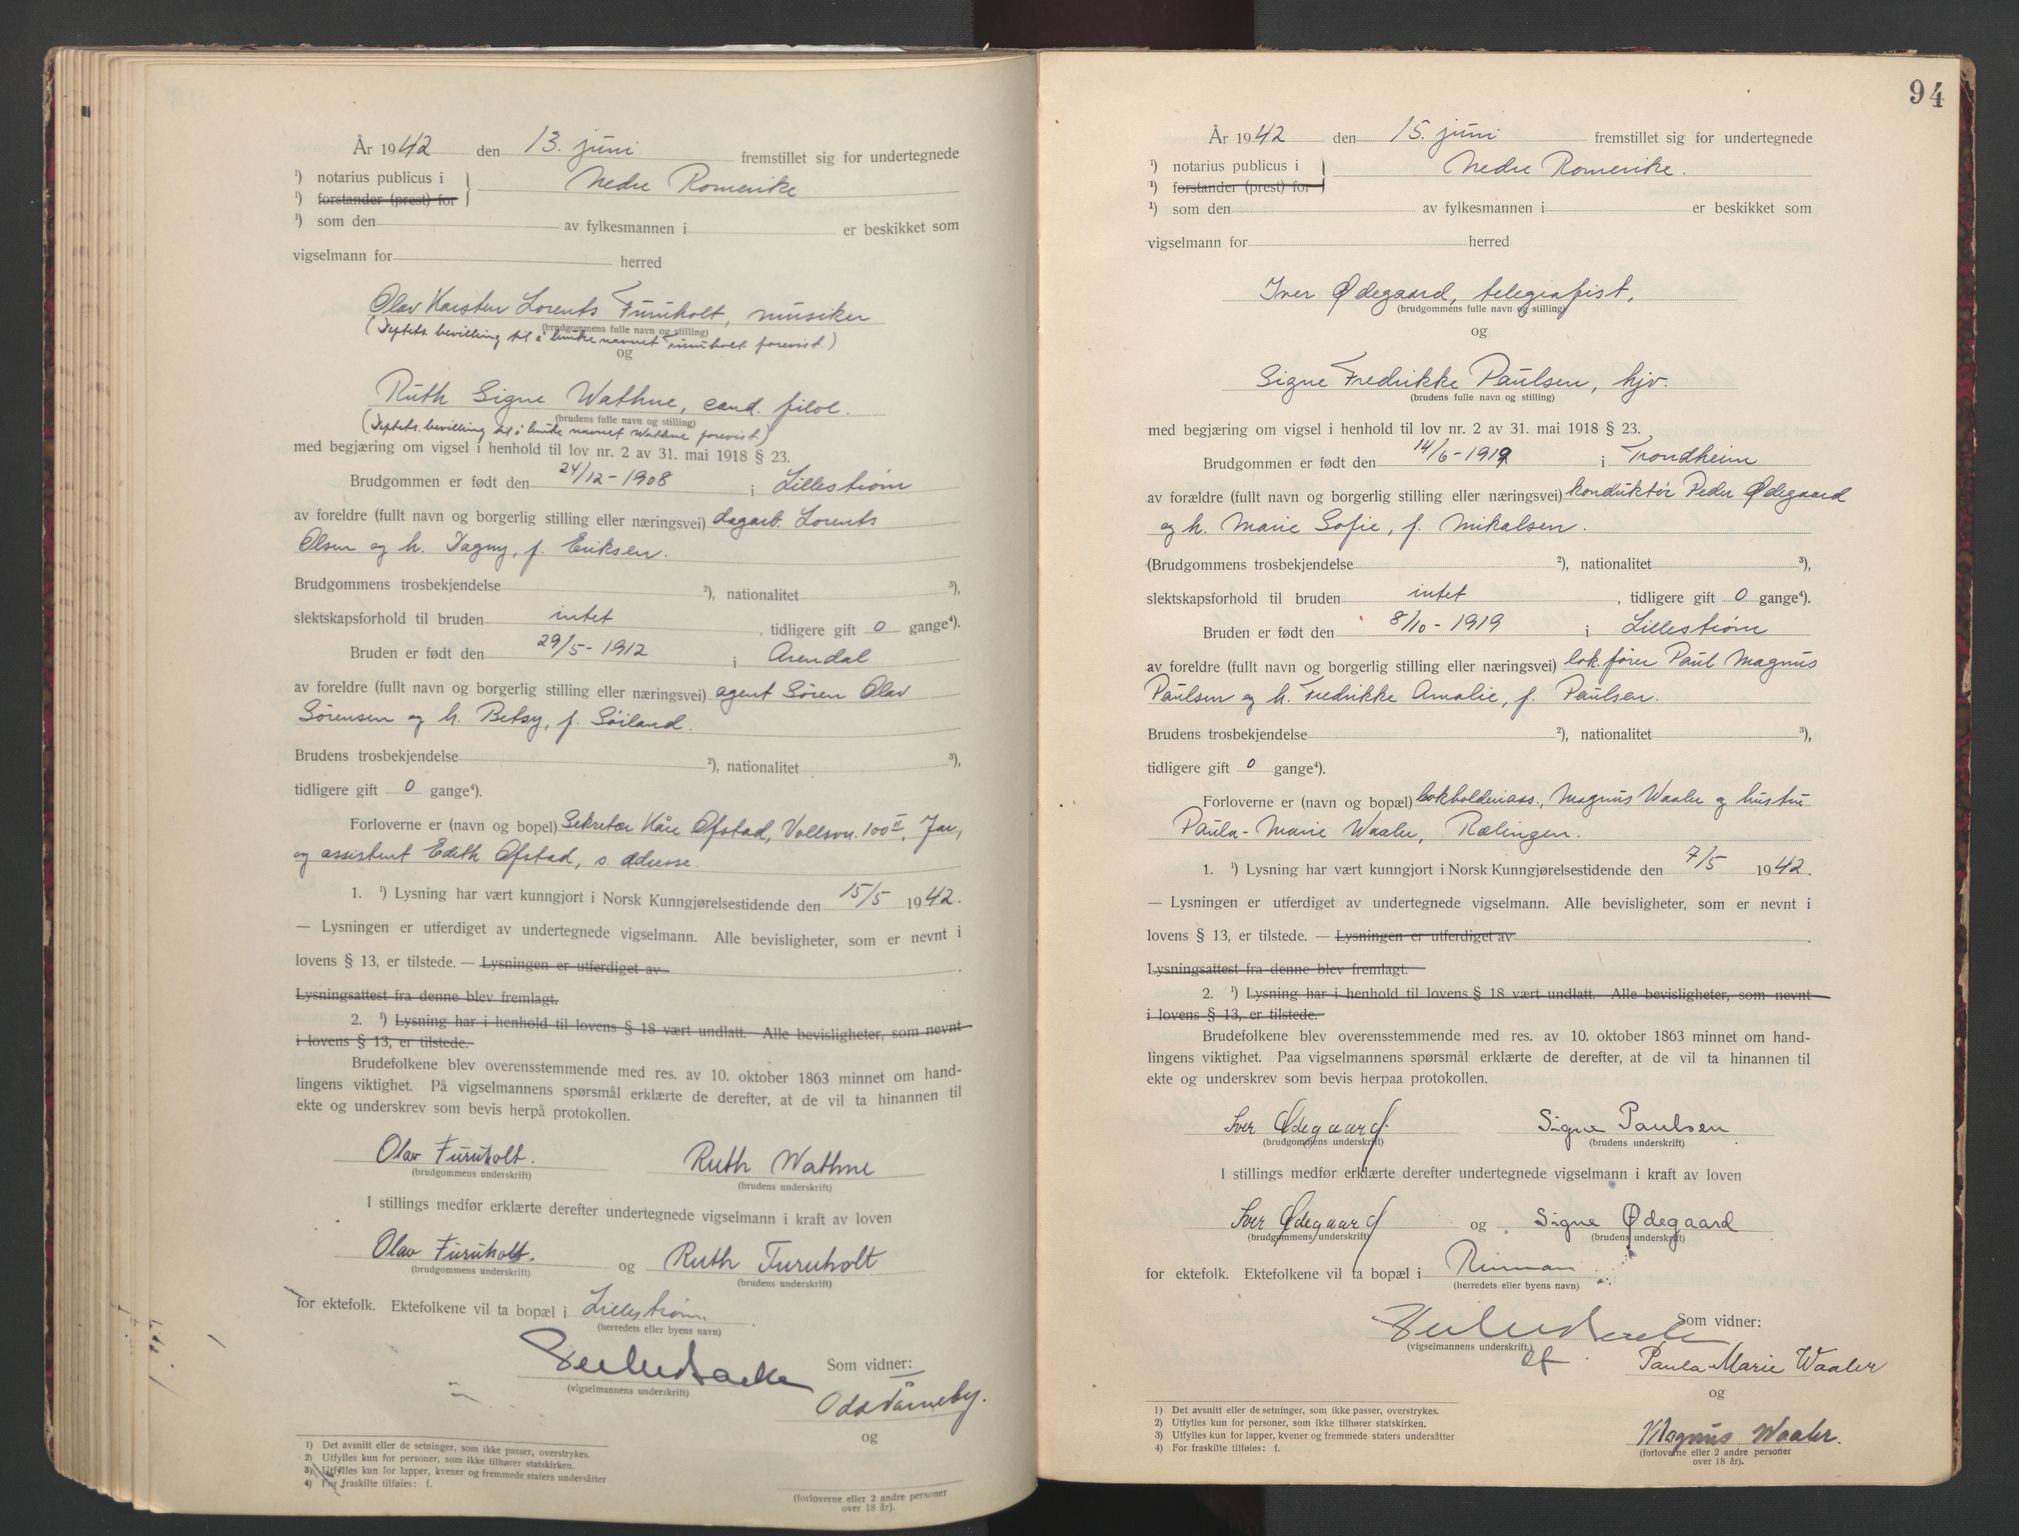 År 1942 den 13. juni fremstillet sig for undertegnede
¹) notarius publicus i
¹) forstander (prest) for
Nedre Romerike
¹) som den av fylkesmannen i er beskikket som
vigselmann for herred
Olav Karsten Lorents Furuholt, musiker
(brudgommens fulle navn og stilling)
(Deptets. bevilling til å bruke navnet Furuholt forevist.)
og
Ruth Signe Wathne, cand. filol.
(brudens fulle navn og stilling)
(Deptets. bevilling til å bruke navnet Wathne forevist)
med begjæring om vigsel i henhold til lov nr. 2 av 31. mai 1918 § 23.
Brudgommen er født den 24/12-1908 i Lillestrøm
av foreldre (fullt navn og borgerlig stilling eller næringsvei) dagarb. Lorents
Olsen og h. Dagny, f. Eriksen.
Brudgommens trosbekjendelse ²), nationalitet ³),
slektskapsforhold til bruden intet, tidligere gift 0 gange⁴).
Bruden er født den 29/5-1912 i Arendal
av foreldre (fullt navn og borgerlig stilling eller næringsvei) agent Søren Olav
Sørensen og h. Betsy, f. Søiland.
Brudens trosbekjendelse ²), nationalitet ³),
tidligere gift 0 gange⁴).
Forloverne er (navn og bopel) Sekretær Kåre Ofstad, Vollsvn. 100 II, Jar,
og assistent Edith Ofstad, s. adresse.
1. ¹) Lysning har vært kunngjort i Norsk Kunngjørelsestidende den 15/5 1942.
— Lysningen er utferdiget av undertegnede vigselmann. Alle bevisligheter, som er nevnt i
lovens § 13, er tilstede. — Lysningen er utferdiget av
Lysningsattest fra denne blev fremlagt.
2. ¹) Lysning har i henhold til lovens § 18 vært undlatt. Alle bevisligheter, som nevnt
i lovens § 13, er tilstede.
Brudefolkene blev overensstemmende med res. av 10. oktober 1863 minnet om hand-
lingens viktighet. På vigselmannens spørsmål erklærte de derefter, at de vil ta hinannen til
ekte og underskrev som bevis herpå protokollen.
Olav Furuholt. Ruth Wathne
(brudgommens underskrift) (brudens underskrift)
I stillings medfør erklærte derefter undertegnede vigselmann i kraft av loven
Olav Furuholt. og Ruth Furuholt
(brudgommens underskrift) (brudens underskrift)
for ektefolk. Ektefolkene vil ta bopæl i Lillestrøm.
(herredets eller byens navn)
Som vidner:
(vigselmannens underskrift)
Odd Tårneby.
og
1) Det avsnitt eller de setninger, som ikke passer, overstrykes.
2) Utfylles kun for personer, som ikke tilhører statskirken.
3) Utfylles kun for lapper, kvener og fremmede staters undersåtter
4) For fraskilte tilføies: f.
(forloverne eller 2 andre personer
over 18 år).
94
År 1942 den 15. juni fremstillet sig for undertegnede
¹) notarius publicus i
¹) forstander (prest) for
Nedre Romerike.
¹) som den av fylkesmannen i er beskikket som
vigselmann for herred
Iver Ødegaard, telegrafist,
(brudgommens fulle navn og stilling)
og
Signe Fredrikke Paulsen, hjv.
(brudens fulle navn og stilling)
med begjæring om vigsel i henhold til lov nr. 2 av 31. mai 1918 § 23.
Brudgommen er født den 14/6-1912 i Trondheim
av forældre (fullt navn og borgerlig stilling eller næringsvei) konduktør Peder Ødegaard
og h. Marie Sofie, f. Mikalsen.
(Brudgommens trosbekjendelse ²), nationalitet ³),
slektskapsforhold til bruden intet, tidligere gift 0 gange⁴).
Bruden er født den 8/10-1919 i Lillestrøm
av foreldre (fullt navn og borgerlig stilling eller næringsvei) lok.fører Paul Magnus
Paulsen og h. Fredrikke Amalie, f. Paulsen.
Brudens trosbekjendelse ²), nationalitet ³),
tidligere gift 0 gange⁴).
Forloverne er (navn og bopæl) bokholderiass., Magnus Waaler og hustru
Paula-Marie Waaler, Rælingen.
1. ¹) Lysning har vært kunngjort i Norsk Kunngjørelsestidende den 7/5 1942.
— Lysningen er utferdiget av undertegnede vigselmann. Alle bevisligheter, som er nevnt i
lovens § 13, er tilstede. — Lysningen er utferdiget av
Lysningsattest fra denne blev fremlagt.
2. ¹) Lysning har i henhold til lovens § 18 vært undlatt. Alle bevisligheter, som nevnt
i lovens § 13, er tilstede.
Brudefolkene blev overensstemmende med res. av 10. oktober 1863 minnet om hand-
lingens viktighet. Paa vigselmannens spørsmål erklærte de derefter, at de vil ta hinannen til
ekte og underskrev som bevis herpaa protokollen.
Iver Ødegaard. Signe Paulsen
(brudgommens underskrift) (brudens underskrift)
I stillings medfør erklærte derefter undertegnede vigselmann i kraft av loven
Iver Ødegaard og Signe Ødegaard
(brudgommens underskrift) (brudens underskrift)
for ektefolk. Ektefolkene vil ta bopæl i
(herredets eller byens navn)
Som vidner:
(vigselmannens underskrift)
Paula-Marie Waaler
og
Magnus Waaler.
(forloverne eller 2 andre personer
over 18 år).
1) Det avsnitt eller de setninger, som ikke passer, overstrykes.
2) Utfylles kun for personer, som ikke tilhører statskirken.
3) Utfylles kun for lapper, kvener og fremmede staters undersåtter
4) For fraskilte tilføies: f.